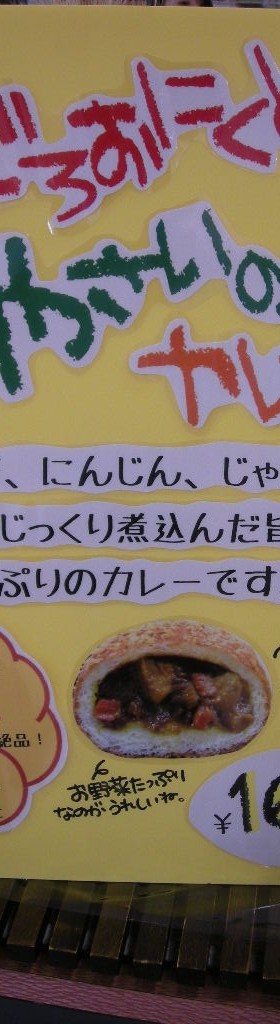 ごろおにく
やさいの
カレ
、にんじん、じゃ
じっくり煮込んだ旨
ぷりのカレーです
絶品！
お野菜たっぷり
なのがうれしいね。
¥16